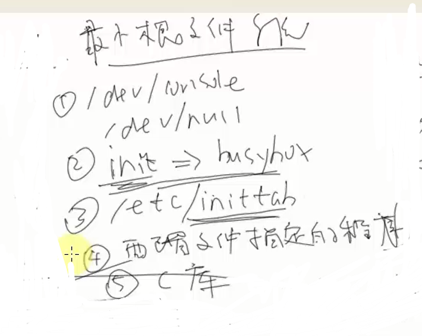 最小根文件系统
① /dev/console
/dev/null
② init => busybox
③ /etc/inittab
④ 配置文件指定的程序
⑤ C库